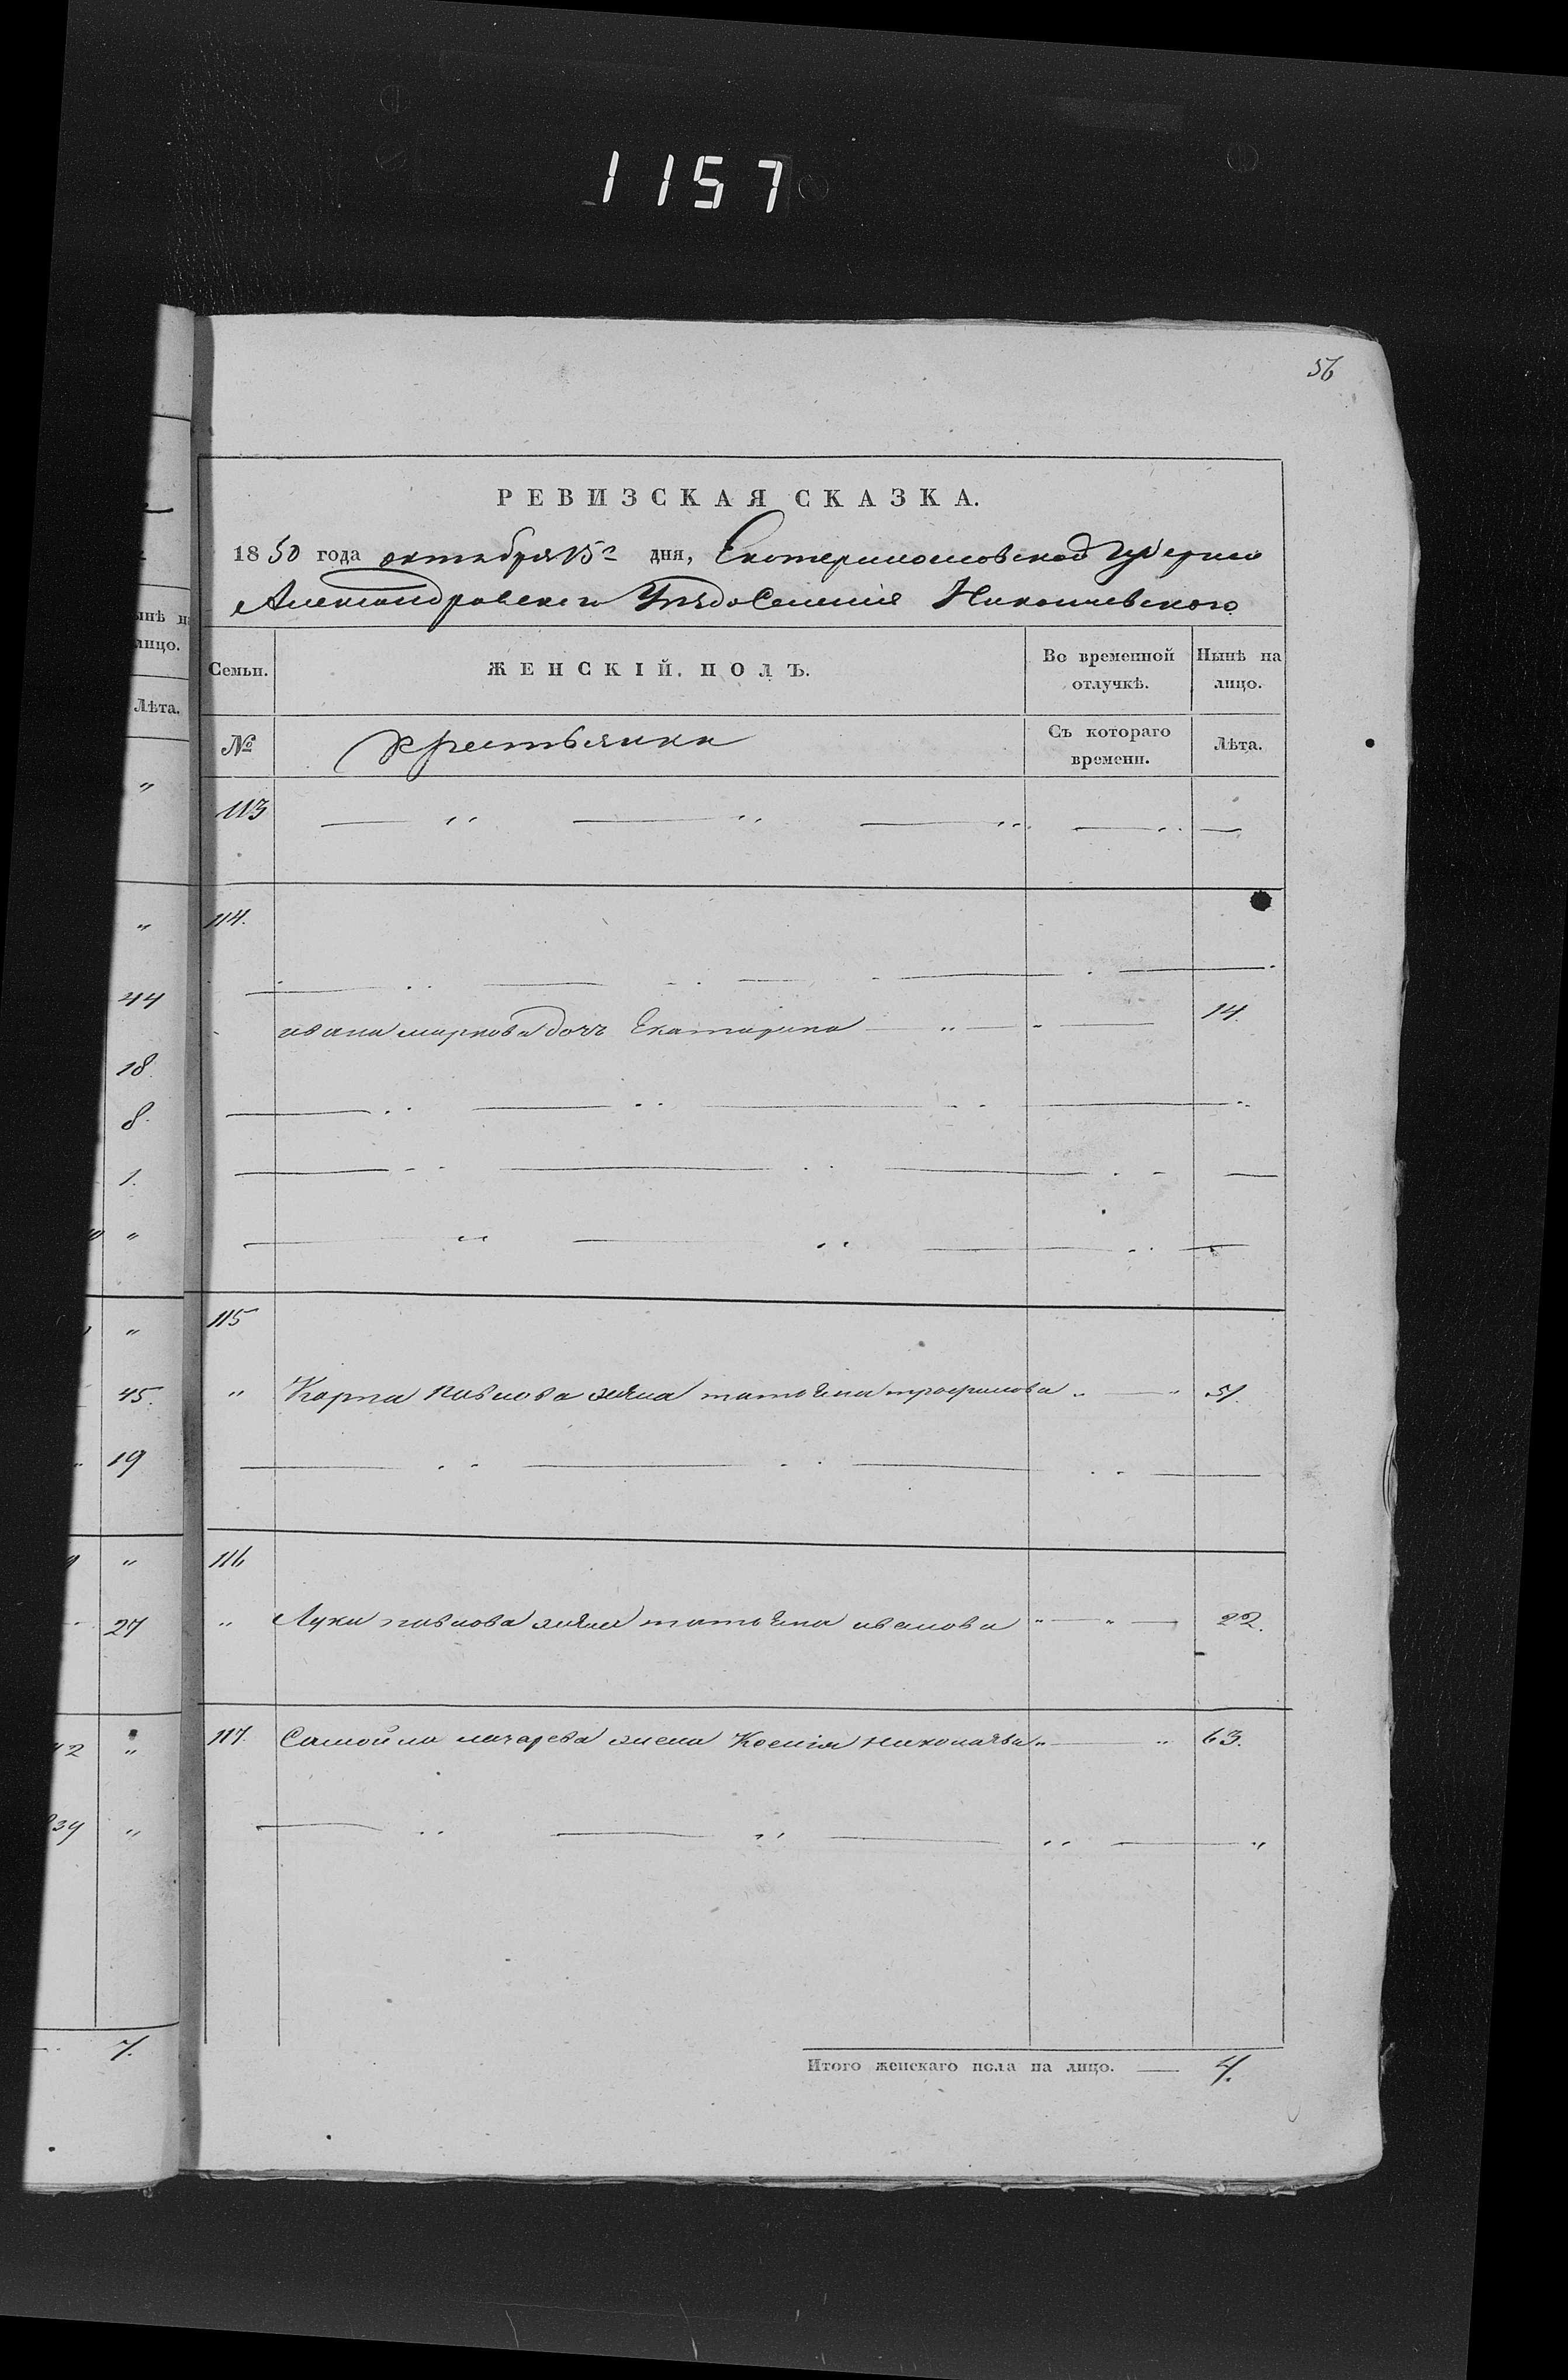 1157
56
РЕВИЗСКАЯ СКАЗКА.
1850 года октября 15 дня, Екатеринославской Губернии
Александровского Уезда Селения Николаевского
Семьи. ЖЕНСКІЙ. ПОЛЪ. Во временной отлучкѣ. Нынѣ на лицо.
№ Крестьянки Съ котораго времени. Лѣта.
113
114.
ивана маркова дочь Екатерина 14.
115
" Карпа павлова жена татьяна трофимова " — " 51.
116
" Луки павлова жена татьяна иванова " — " — 22.
117. Самойла жена Ксенія николаева " — " 63.
Итого женскаго пола на лицо. — 4.
ынѣ на
лицо.
Лѣта.
"
"
44
18.
8.
1.
"
"
45.
19
"
27
"
"
7.